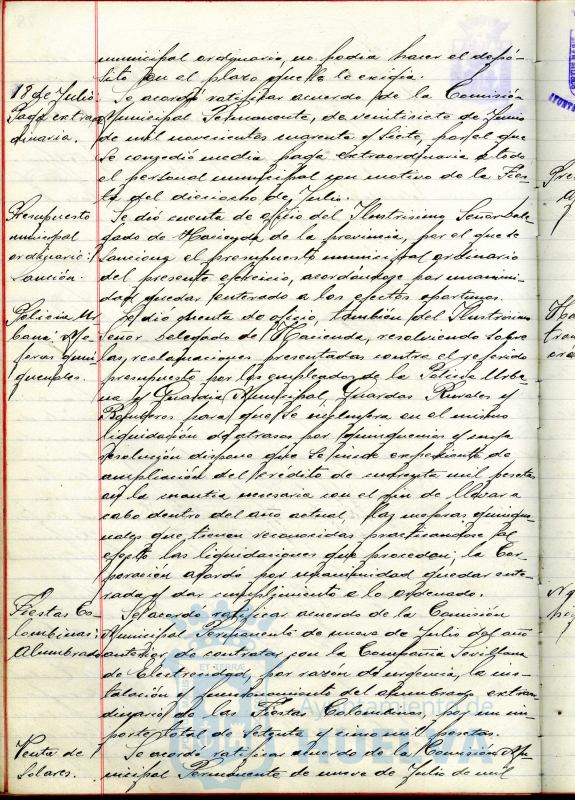 municipal ordinario, no podía hacer el depó-
sito en el plazo que se le exigía.
18 de Julio
Paga extraor
dinaria.
Se acordó ratificar acuerdo de la Comisión
Municipal Permanente, de veintisiete de Junio
de mil novecientos cuarenta y siete, por el que
se concedió media paga extraordinaria a todo
el personal municipal con motivo de la Fies-
ta del dieciocho de Julio.
Presupuesto
municipal
ordinario:
Sanción.
Se dió cuenta de oficio del Ilustrísimo Señor Dele-
gado de Hacienda de la provincia, por el que se
sanciona el presupuesto municipal ordinario
del presente ejercicio, acordándose por unanimi-
dad quedar enterado a los efectos oportunos.
Policia Ur-
bana: Me-
joras quin-
quenales.
Se dió cuenta de oficio, también del Ilustrísimo
Señor Delegado de Hacienda, resolviendo sobre
las reclamaciones presentadas contra el referido
presupuesto por los empleados de la Policía Urba-
na y Guardia Municipal, Guardas Rurales y
Bomberos para que se incluyera en el mismo
liquidación de atrasos por quinquenios y cuya
resolución dispone que se incoe expediente de
ampliación del crédito de cuarenta mil pesetas
en la cuantía necesaria con el fin de llevar a
cabo dentro del año actual, las mejoras quinque-
nales que tienen reconocidas practicandose al
efecto las liquidaciones que procedan; la Cor-
poración acordó por unanimidad quedar ente-
rada y dar cumplimiento a lo ordenado.
Fiestas Co-
lombinas:
Alumbrado
Se acordó ratificar acuerdo de la Comisión
Municipal Permanente de nueve de Julio del año
anterior de contratar con la Compañía Sevillana
de Electricidad, por razón de urgencia, la ins-
talación y funcionamiento del alumbrado extraor-
dinario de las Fiestas Colombinas, por un im-
porte total de setenta y cinco mil pesetas.
Venta de
Solares.
Se acordó ratificar acuerdo de la Comisión Mu-
nicipal Permanente de nueve de Julio de mil
ET TERRÆ
Ayuntamiento de
HUELVA